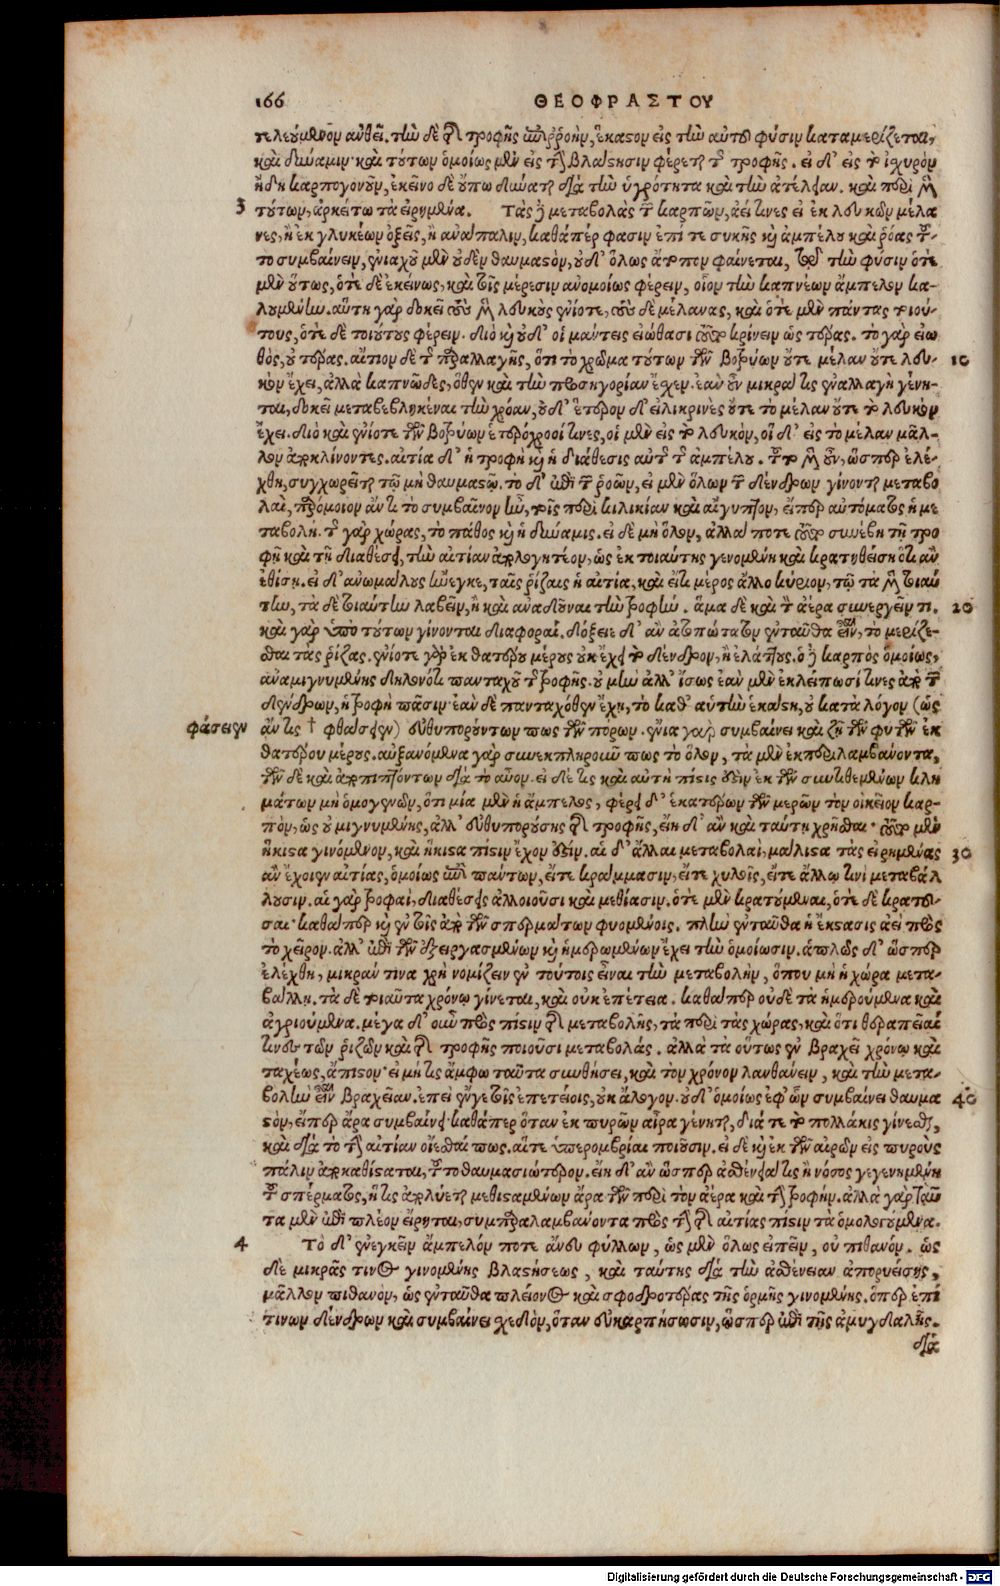 166 ΘΕΟΦΡΑΣΤΟΥ
τελεύμενον αὐθεῖ. τὴν δὲ τῆς τροφῆς ἐπιῤῥοὴν, ἕκαστον εἰς τὴν αὑτοῦ φύσιν καταμερίζεται,
καὶ δύναμιν· καὶ τούτων ὁμοίως μὲν εἰς τὴν βλάστησιν φέρεται τῆς τροφῆς. εἰ δ' εἰς τὸ ἰσχυρὸν
ἤδη καρπογονοῦν, ἐκεῖνο δὲ οὔπω δύναται διὰ τὴν ὑγρότητα καὶ τὴν ἀτέλειαν. καὶ περὶ μὲν
3 τούτων, ἀρκείτω τὰ εἰρημένα. Τὰς δὲ μεταβολὰς τῶν καρπῶν, ἀεί τινες εἰ ἐκ λευκῶν μέλα
νες, ἢ ἐκ γλυκέων ὀξεῖς, ἢ ἀνάπαλιν, καθάπέρ φασιν ἐπί τε συκῆς καὶ ἀμπέλου καὶ ῥόας τοῦ-
το συμβαίνειν, ἐνιαχοῦ μὲν οὐδὲν θαυμαστὸν, οὐδ' ὅλως ἄτοπον φαίνεται, παρὰ τὴν φύσιν ὁτὲ
μὲν οὕτως, ὁτὲ δὲ ἐκείνως, καὶ τοῖς μέρεσιν ἀνομοίως φέρειν, οἷον τὴν καπνέων ἄμπελον κα-
λουμένην. αὕτη γὰρ δοκεῖ τοὺς μὲν λευκοὺς ἐνίοτε, τοὺς δὲ μέλανας, καὶ ὁτὲ μὲν πάντας τοιού-
τους, ὁτὲ δὲ τοιούτους φέρειν. διὸ καὶ οὐδ' οἱ μάντεις εἰώθασι τοῦτο κρίνειν ὡς τέρας. τὸ γὰρ εἰω
θὸς, οὐ τέρας. αἴτιον δὲ τῆς παραλλαγῆς, ὅτι τὸ χρῶμα τούτων τῶν βοτρύων οὔτε μέλαν οὔτε λευ- 10
κὸν ἔχει, ἀλλὰ καπνῶδες, ὅθεν καὶ τὴν προσηγορίαν ἔσχεν. ἐὰν οὖν μικρά τις ἐναλλαγὴ γένη-
ται, δοκεῖ μεταβεβληκέναι τὴν χρόαν, οὐδ' ἕτερον δ' εἰλικρινὲς οὔτε τὸ μέλαν οὔτε τὸ λευκὸν
ἔχει. διὸ καὶ ἐνίοτε τῶν βοτρύων ἑτερόχροοί τινες, οἱ μὲν εἰς τὸ λευκὸν, οἱ δ' εἰς τὸ μέλαν μᾶλ-
λον ἀποκλίνοντες. αἰτία δ' ἡ τροφὴ καὶ ἡ διάθεσις αὐτῆς τῆς ἀμπέλου. τοῦτο μὲν οὖν, ὥσπερ ἐλέ-
χθη, συγχωρεῖται τῷ μὴ θαυμαστῷ. τὸ δ' ἐπὶ τῶν ῥοῶν, εἰ μὲν ὅλων τῶν δένδρων γίνονται μεταβο
λαὶ, παρόμοιον ἄν τι τὸ συμβαῖνον ἦν, τοῖς περὶ κιλικίαν καὶ αἴγυπτον, εἴπερ αὐτόματος ἡ με
ταβολή. τῆς γὰρ χώρας, τὸ πάθος καὶ ἡ δύναμις. εἰ δὲ μὴ ὅλον, ἀλλά ποτε τοῦτο συνέβη τῇ τρο
φῇ καὶ τῇ διαθέσει, τὴν αἰτίαν ἀπολογητέον, ὡς ἐκ τοιαύτης γενομένη καὶ κρατηθείση ὅτι ἂν
ἐθίσῃ. εἰ δ' ἀνωμάλους ἤνεγκε, ταῖς ῥίζαις ἡ αἰτία, καὶ εἴ τι μέρος ἄλλο κύριον, τῷ τὰ μὲν τοιαύ
την, τὰ δὲ τοιαύτην λαβεῖν, ἢ καὶ ἀναδοῦναι τὴν τροφήν. ἅμα δὲ καὶ τὸν ἀέρα συνεργεῖν τι. 20
καὶ γὰρ ὑπὸ τούτων γίνονται διαφοραί. δόξειε δ' ἂν ἀτοπώτατον ἐνταῦθα εἶναι, τὸ μερίζε-
σθαι τὰς ῥίζας. ἐνίοτε γὰρ ἐκ θατέρου μέρους οὐκ ἔχει τὸ δένδρον, ἢ ἐλάττους. ὁ δὲ καρπὸς ὁμοίως,
ἀναμιγνυμένης δηλονότι πανταχοῦ τῆς τροφῆς. οὐ μὴν ἀλλ' ἴσως ἐὰν μὲν ἐκλείπωσί τινες ἀπὸ τῶν
δένδρων, ἡ τροφὴ πᾶσιν· ἐὰν δὲ πανταχόθεν ἔχῃ, τὸ καθ' αὑτὴν ἑκάστη, οὐ κατὰ λόγον (ὡς
φάσειεν ἄν τις † φθάσειεν) εὐθυπορούντων πως τῶν πόρων. ἔνια γὰρ συμβαίνει καὶ ζῆν τῶν φυτῶν ἐκ
θατέρου μέρους. αὐξανόμενα γὰρ συνεκπληροῦν πως τὸ ὅλον, τὰ μὲν ἐκπεριλαμβάνοντα,
τῶν δὲ καὶ ἀποπιπτόντων διὰ τὸ αὖον. εἰ δέ τις καὶ αὐτὴ πίστις ἐστὶν ἐκ τῶν συντιθεμένων κλη
μάτων μὴ ὁμογενῶν, ὅτι μία μὲν ἡ ἄμπελος, φέρει δ' ἑκατέρων τῶν μερῶν τὸν οἰκεῖον καρ-
πὸν, ὡς οὐ μιγνυμένης, ἀλλ' εὐθυπορούσης τῆς τροφῆς, εἴη δ' ἂν καὶ ταύτῃ χρῆσθαι· τοῦτο μὲν
ἥκιστα γινόμενον, καὶ ἥκιστα πίστιν ἔχον ἐστίν. αἱ δ' ἄλλαι μεταβολαὶ, μάλιστα τὰς εἰρημένας 30
ἂν ἔχοιεν αἰτίας, ὁμοίως ἐπὶ πάντων, εἴτε χρώμασιν, εἴτε χυλοῖς, εἴτε ἄλλῳ τινὶ μεταβάλ
λουσιν. αἱ γὰρ τροφαὶ, διαθέσεις ἀλλοιοῦσι καὶ μεθίασιν. ὁτὲ μὲν κρατούμεναι, ὁτὲ δὲ κρατοῦ-
σαι· καθάπερ καὶ ἐν τοῖς ἀπὸ τῶν σπερμάτων φυομένοις. πλὴν ἐνταῦθα ἡ ἔκστασις ἀεὶ πρὸς
τὸ χεῖρον. ἀλλ' ἐπὶ τῶν ἐξειργασμένων καὶ ἡμερωμένων ἔχει τὴν ὁμοίωσιν. ἁπλῶς δ' ὥσπερ
ἐλέχθη, μικράν τινα χρὴ νομίζειν ἐν τούτοις εἶναι τὴν μεταβολὴν, ὅπου μὴ ἡ χώρα μετα-
βάλλῃ. τὰ δὲ τοιαῦτα χρόνῳ γίνεται, καὶ οὐκ ἐπέτεια. καθάπερ οὐδὲ τὰ ἡμερούμενα καὶ
ἀγριούμενα. μέγα δ' οὖν πρὸς πίστιν τῆς μεταβολῆς, τὰ περὶ τὰς χώρας, καὶ ὅτι θεραπεῖαί
τινες τῶν ῥιζῶν καὶ τῆς τροφῆς ποιοῦσι μεταβολάς. ἀλλὰ τὰ οὕτως ἐν βραχεῖ χρόνῳ καὶ
ταχέως, ἄπιστον· εἰ μή τις ἄμφω ταῦτα συνθήσει, καὶ τὸν χρόνον λανθάνειν, καὶ τὴν μετα-
βολὴν εἶναι βραχεῖαν. ἐπεὶ ἔν γε τοῖς ἐπετείοις, οὐκ ἄλογον. οὐδ' ὁμοίως ἐφ' ὧν συμβαίνει θαυμα 40
στὸν, εἴπερ ἄρα συμβαίνει καθάπερ ὅταν ἐκ πυρῶν αἶρα γένηται, διά τε τὸ πολλάκις γίνεσθαι,
καὶ διὰ τὸ τὴν αἰτίαν οἴεσθαί πως. αἵτε ὑπερομβρίαι ποιοῦσιν. εἰ δὲ καὶ ἐκ τῶν αἰρῶν εἰς πυροὺς
πάλιν ἀποκαθίσταται, τοῦτο θαυμασιώτερον. εἴη δ' ἂν ὥσπερ ἀσθένειά τις ἢ νόσος γεγενημένη
τοῦ σπέρματος, ἥ τις ἀπολύεται μεθισταμένων ἄρα τῶν περὶ τὸν ἀέρα καὶ τὴν τροφήν. ἀλλὰ γὰρ ταῦ
τα μὲν ἐπὶ πλέον εἴρηται, συμπαραλαμβάνοντα πρὸς τὴν τῆς αἰτίας πίστιν τὰ ὁμολογούμενα.
4 Τὸ δ' ἐνεγκεῖν ἄμπελόν ποτε ἄνευ φύλλων, ὡς μὲν ὅλως εἰπεῖν, οὐ πιθανόν. ὡς
δὲ μικρᾶς τινος γινομένης βλαστήσεως, καὶ ταύτης διὰ τὴν ἀσθένειαν ἀπορυείσης,
μᾶλλον πιθανὸν, ὡς ἐνταῦθα πλείονος καὶ σφοδροτέρας τῆς ὁρμῆς γινομένης. ὅπερ ἐπί
τινων δένδρων καὶ συμβαίνει σχεδὸν, ὅταν εὐκαρπήσωσιν, ὥσπερ ἐπὶ τῆς ἀμυγδαλῆς.
διὰ
Digitalisierung gefördert durch die Deutsche Forschungsgemeinschaft - DFG